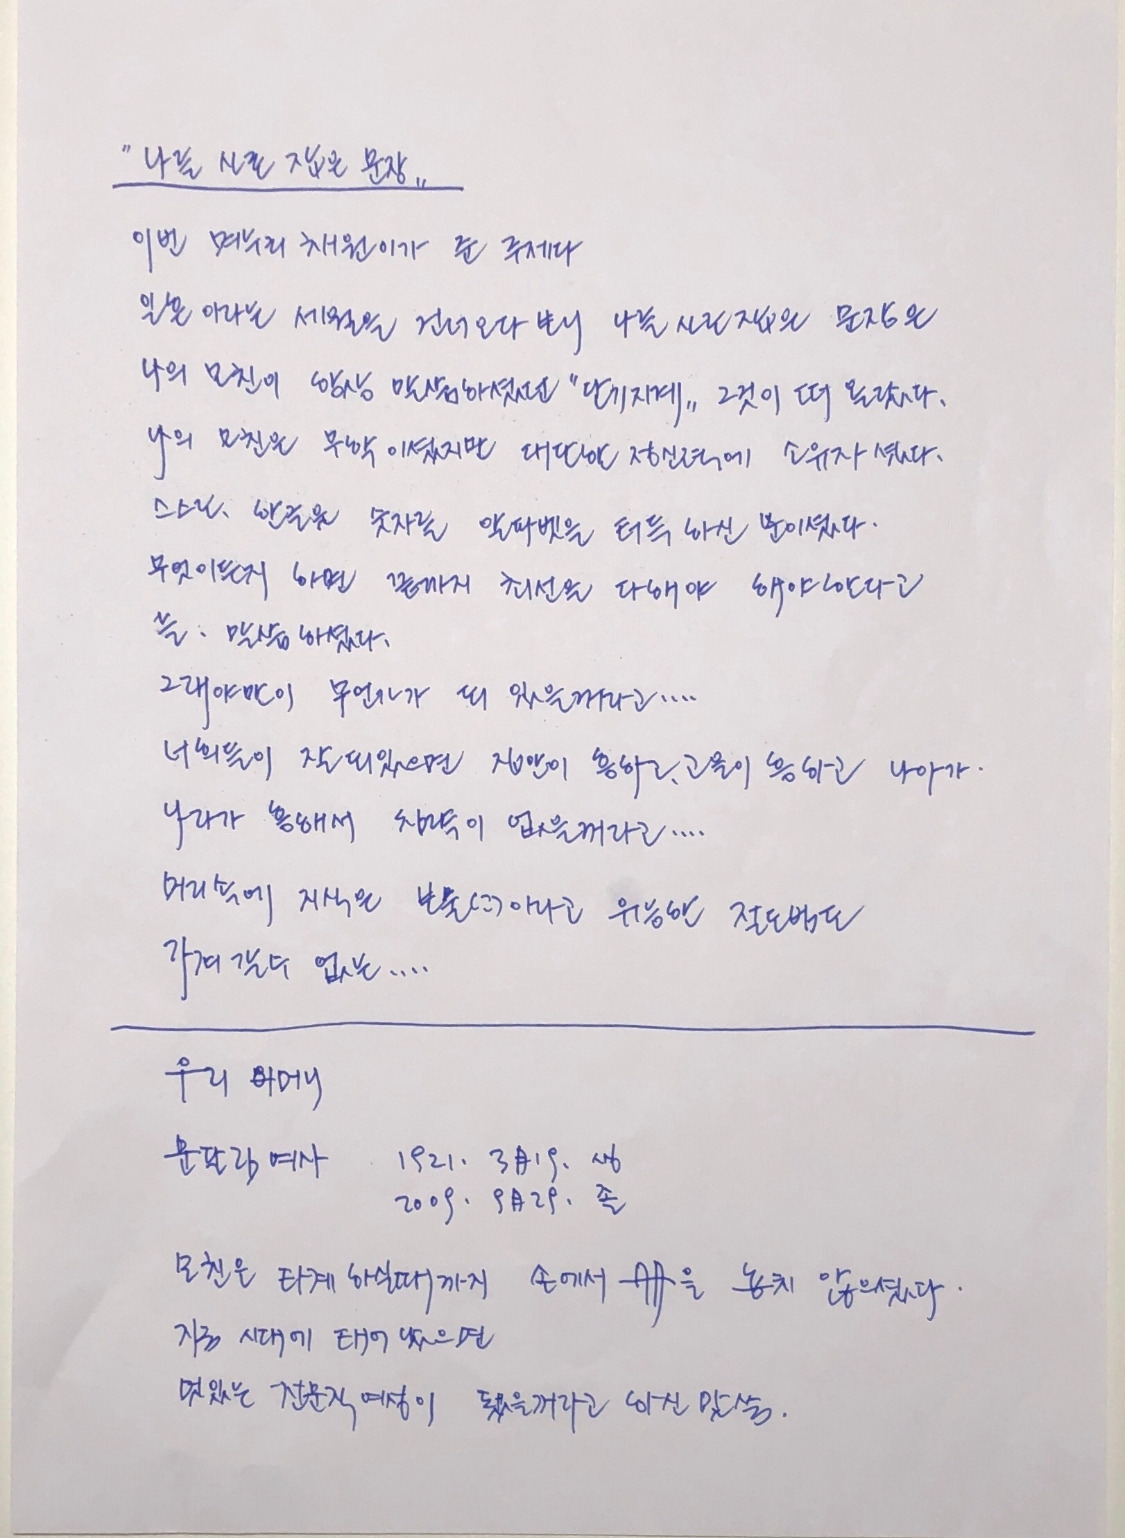 "나를 사로 잡은 문장"
이번 며누리 채원이가 준 주제다
일흔 이라는 세월을 건너오다 보니 나를 사로잡은 문장은
나의 모친이 항상 말씀하셨던 "단기지계" 그것이 떠 올랐다.
나의 모친은 무학이셨지만 대단한 정신력에 소유자 셨다.
스스로, 한글을 숫자를 알파벳을 터득 하신 분이셨다.
무엇이든지 하면 끝까지 최선을 다해야 해야한다고
늘. 말씀하셨다.
그래야만이 무언가가 되 있을꺼라고....
너희들이 잘 되있으면 집안이 흥하고, 고을이 흥하고 나아가.
나라가 흥해서 침략이 없을꺼라고....
머리속에 지식은 보물(굿)이라고 유능한 절도범도
가져 갈수 없는....
우리 어머니
문달림 여사 1921. 3月19. 생
2009. 9月29. 졸
모친은 타계 하실때까지 손에서 冊을 놓치 않으셨다.
지금 시대에 태어 났으면
멋있는 전문직여성이 됐을꺼라고 하신 말씀.